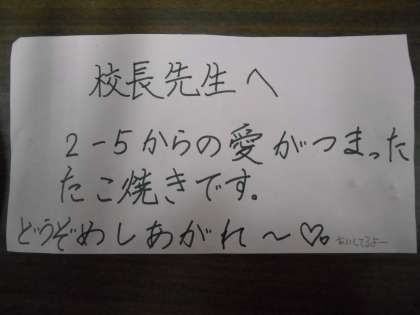 校長先生へ
2-5からの愛がつまった
たこ焼きです。
どうぞめしあがれ〜♡。